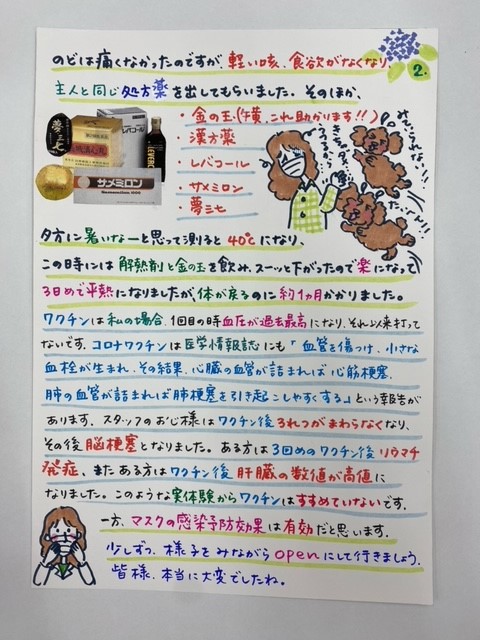 2.
のどは痛くなかったのですが、軽い咳、食欲がなくなり、
主人と同じ処方薬を出してもらいました。そのほか、
・金の玉(横、これ助かります!!)
・漢方薬
・レバコール
・サメミロン
・夢三七
夢三七
レバコール
サメミロン
夕方に暑いなーと思って測ると40℃になり、
この時には解熱剤と金の玉を飲み、スーッと下がったので、楽になって
3日めで平熱になりましたが、体が戻るのに約1ヵ月かかりました。
ワクチンは私の場合、1回目の時血圧が過去最高になり、それ以来打って
ないです。コロナワクチンは医学情報誌にも「血管を傷つけ、小さな
血栓が生まれ、その結果、心臓の血管が詰まれば心筋梗塞、
肺の血管が詰まれば肺梗塞を引き起こしやすくする」という報告が
あります。スタッフのおじ様はワクチン後ろれつがまわらなくなり、
その後脳梗塞となりました。ある方は3回めのワクチン後リウマチ
発症、またある方はワクチン後肝臓の数値が高値に
なりました。このような実体験からワクチンはすすめていないです。
一方、マスクの感染予防効果は有効だと思います。
少しずつ、様子をみながらopenにして行きましょう。
皆様、本当に大変でしたね。